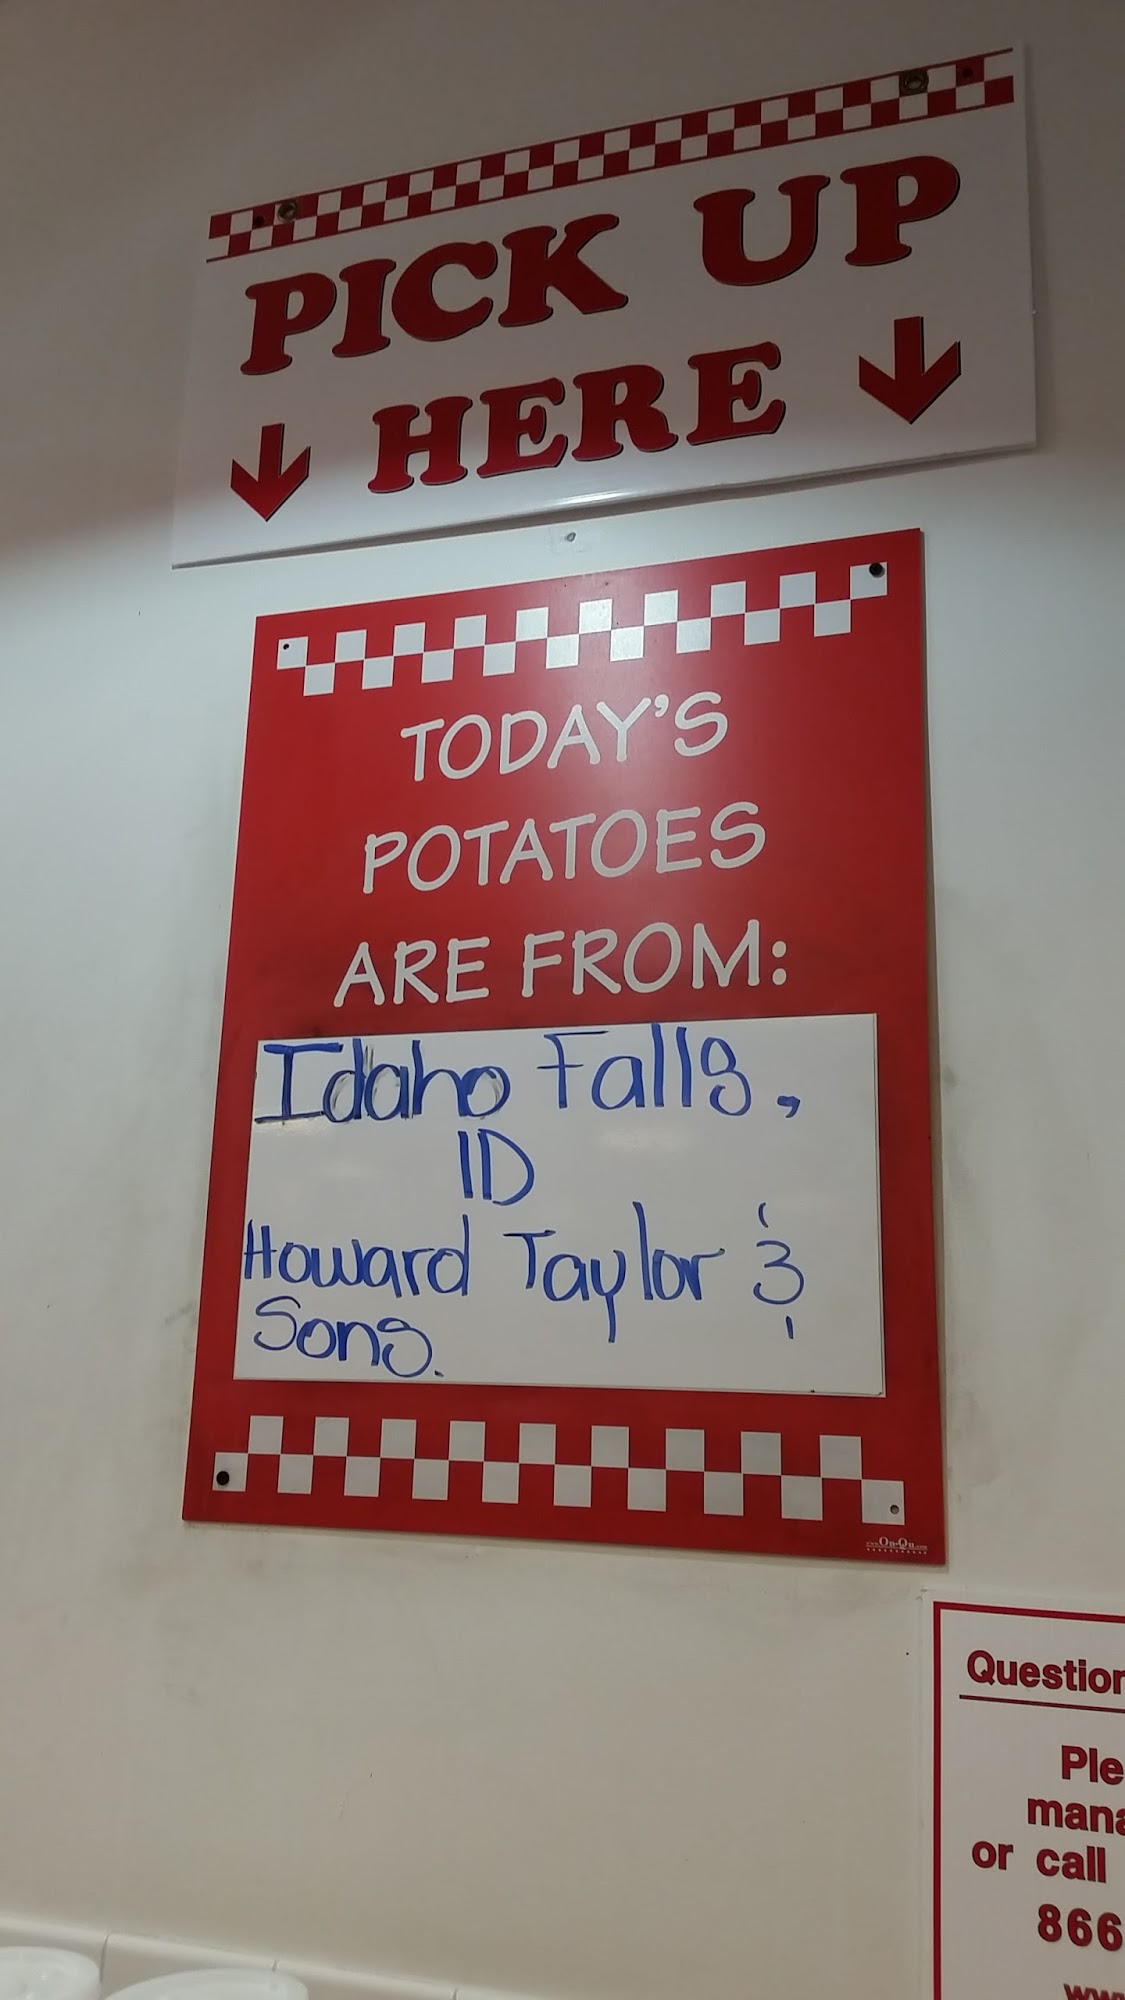 PICK UP
HERE
TODAY'S
POTATOES
ARE FROM:
Idaho Falls,
ID
Howard Taylor &
Sons.
www.On-Qu.com
Question
Ple
mana
or call
866
www